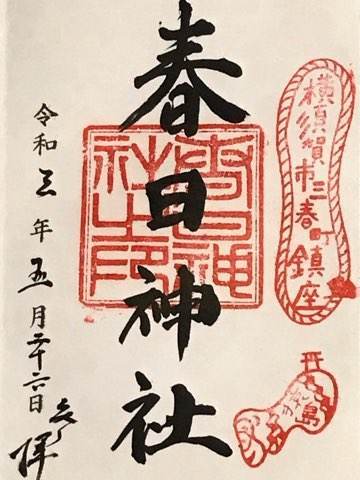 横須賀市三春町鎮座
猿島
春日神社
春日神
社之印
令和三年五月二十六日
拝